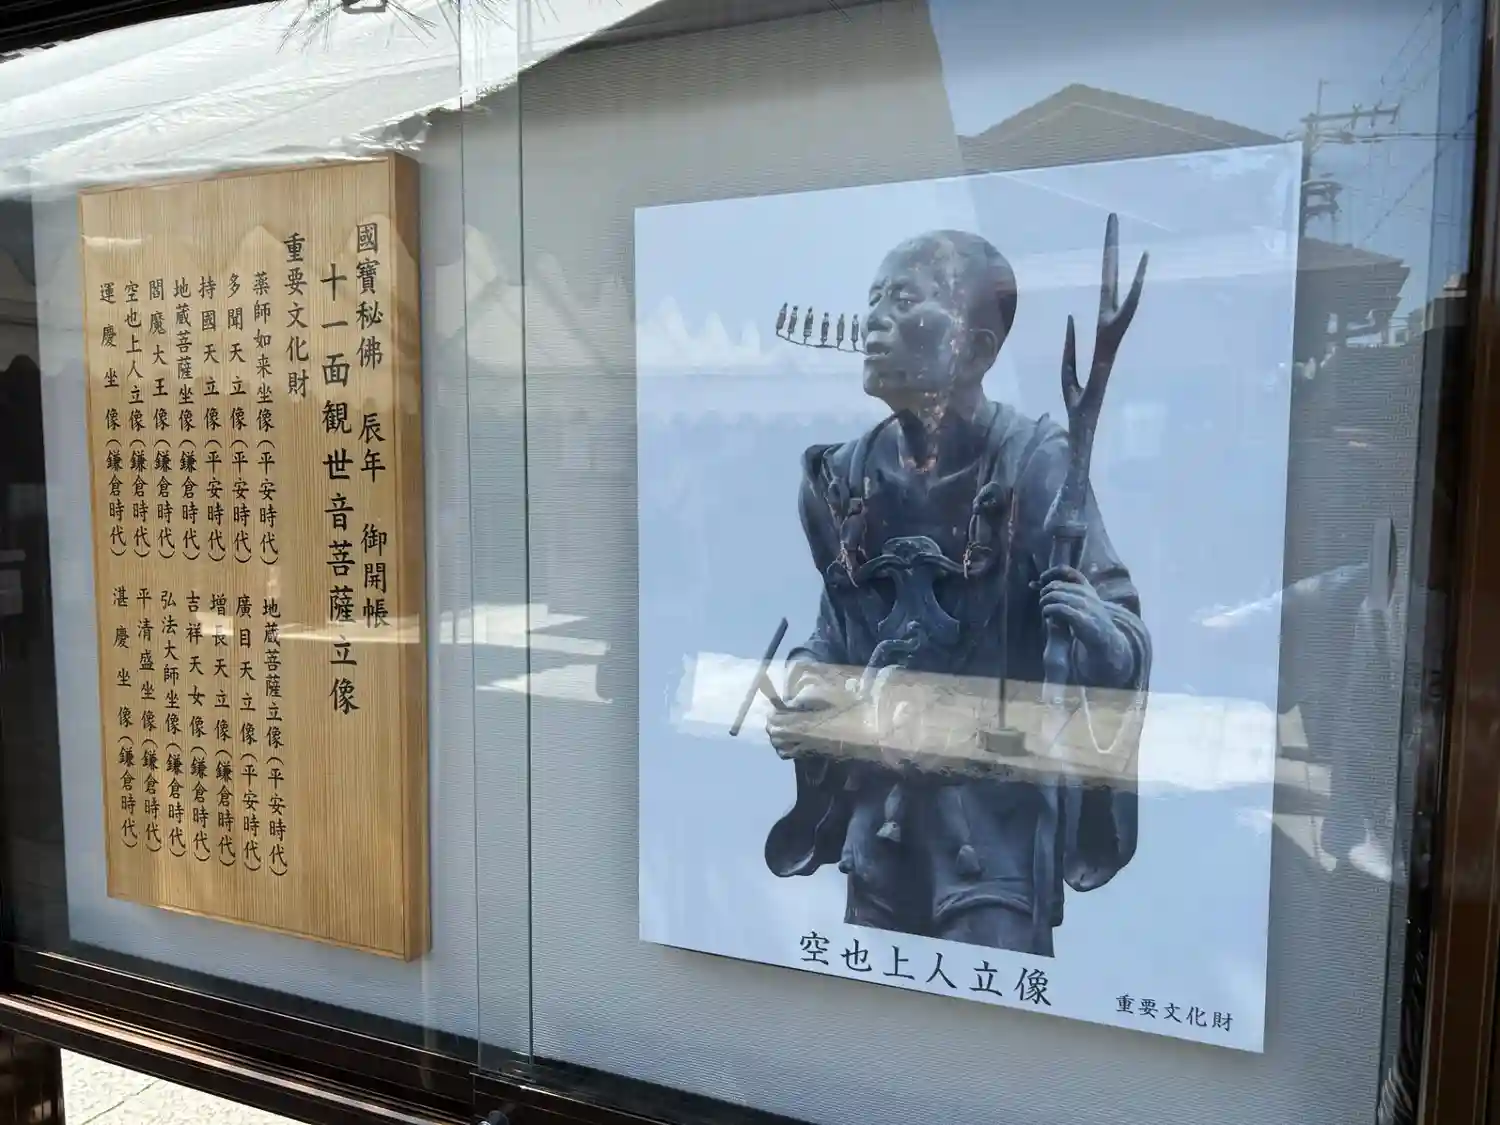 國寶秘佛 辰年 御開帳
十一面観世音菩薩立像
重要文化財
薬師如来坐像(平安時代) 地蔵菩薩立像(平安時代)
多聞天立像(平安時代) 廣目天立像(平安時代)
持國天立像(平安時代) 増長天立像(鎌倉時代)
地蔵菩薩坐像(鎌倉時代) 吉祥天女像(鎌倉時代)
閻魔大王像(鎌倉時代) 弘法大師坐像(鎌倉時代)
空也上人立像(鎌倉時代) 平清盛坐像(鎌倉時代)
運慶坐像(鎌倉時代) 湛慶坐像(鎌倉時代)
空也上人立像
重要文化財